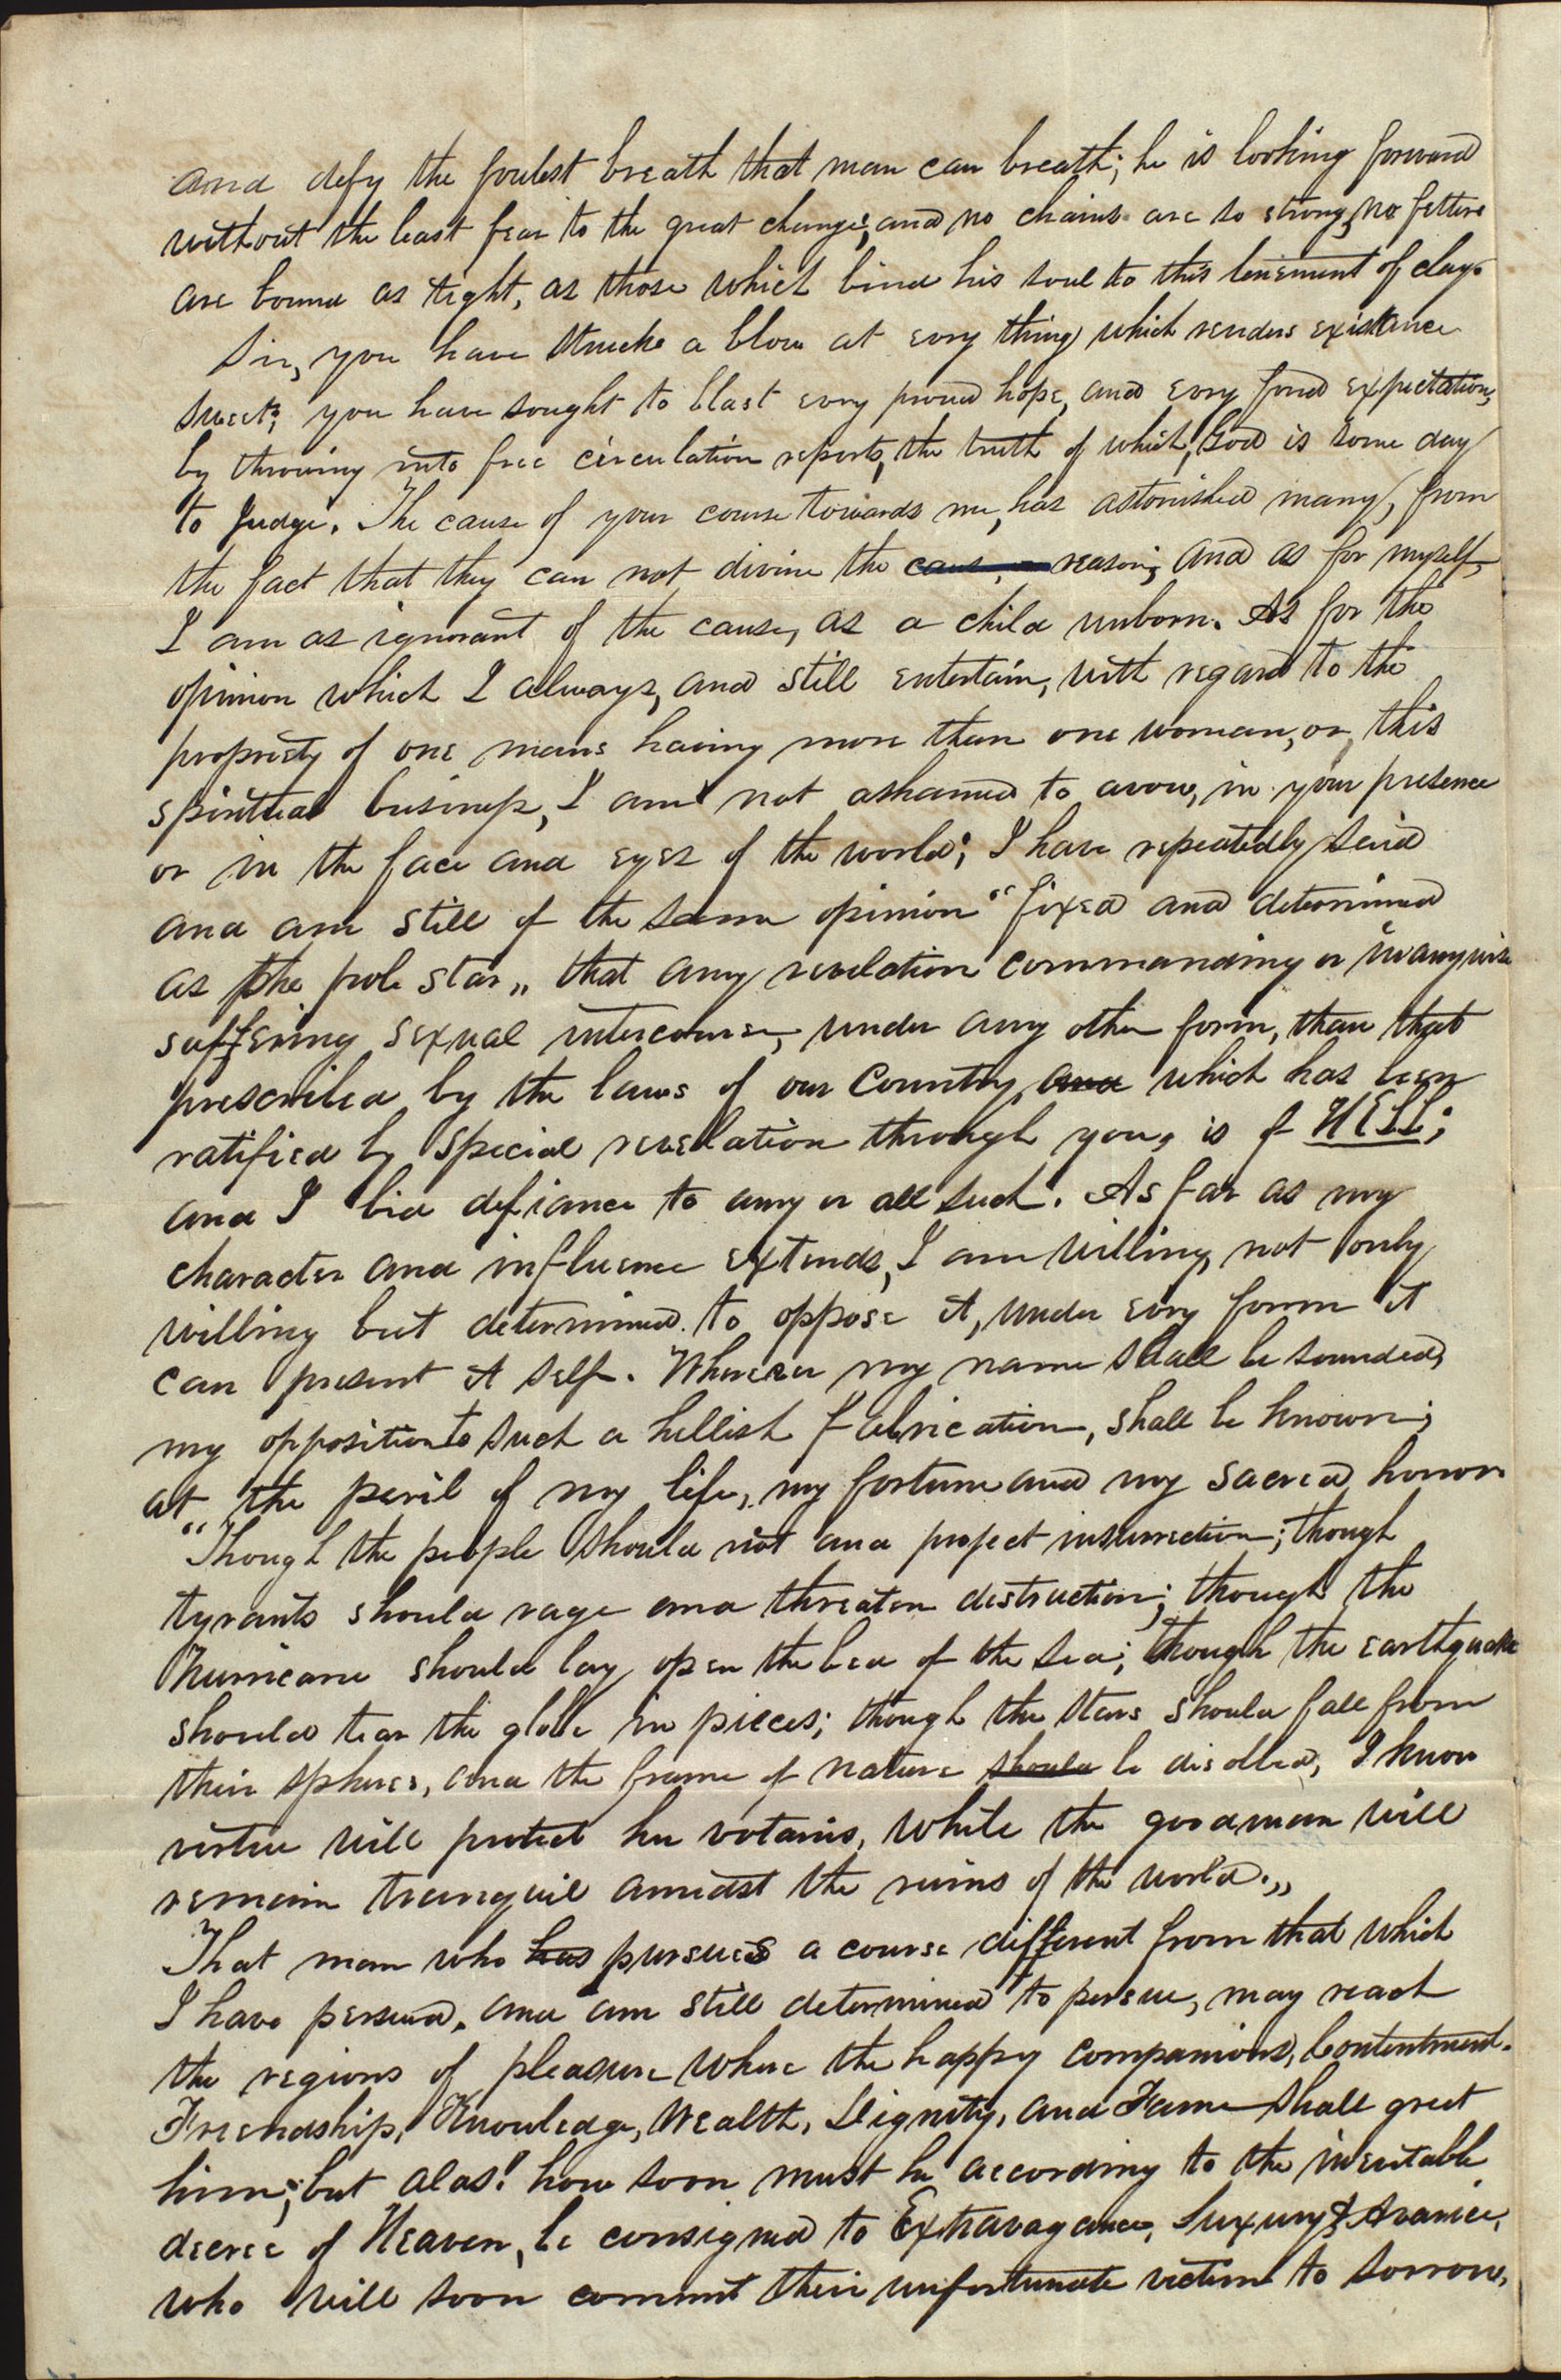 and defy the foulest breath that man can breath; he is looking forward
without the least fear to the great change; and no chains are so strong, no fetters
are bound as tight, as those which bind his soul to this tenement of clay.
Sir, you have struck a blow at evry thing which renders existance
sweet; you have sought to blast evry proud hope, and evry fond expectation,
by throwing into free circulation reports, the truth of which, God is some day
to Judge. The cause of your course towards me, has astonished many, from
the fact that they can not divine the caus, or reason; and as for myself,
I am as ignorant of the cause, as a child unborn. As for the
opinion which I always, and still entertain, with regard to the
propriety of one mans having more than one woman, or, this
spiritual business, I am not ashamed to avow, in your presence
or in the face and eyes of the world; I have repeatedly said
and am still of the same opinion "fixed and determined
as the pole star„ that any revelation commanding or in any wise
suffering sexual intercourse, under any other form, than that
prescribed by the laws of our Country, and which has been
ratified by special revelation through you, is of HELL;
and I bid defiance to any or all such. As far as my
character and influence extends, I am willing, not only
willing but determined to oppose it, under evry form it
can present it self. Wherever my name shall be sounded,
my opposition to such a hellish fabrication, shall be known;
at the peril of my life, my fortune and my sacred honor
"Though the people should riot and project insurrection; though
tyrants should rage and threaten destruction; though the
hurricane should lay open the bed of the sea; though the earthquake
should tear the globe in pieces; though the stars should fall from
their spheres, and the frame of nature should be disolled, I know
virtue will protect her votaries, while the good man will
remain tranquil amidst the ruins of the world.„
That man who has pursues a course different from that which
I have persued, and am still determined to persue, may reach
the regions of pleasure where the happy companions, Contentment.
Friendship, Knowledge, Wealth, Dignity, and Fame shall greet
him; but alas! how soon must he according to the inevitable
decree of Heaven, be consigned to Extravagance, Luxury & Avarice,
who will soon commit their unfortunate victim to sorrow,